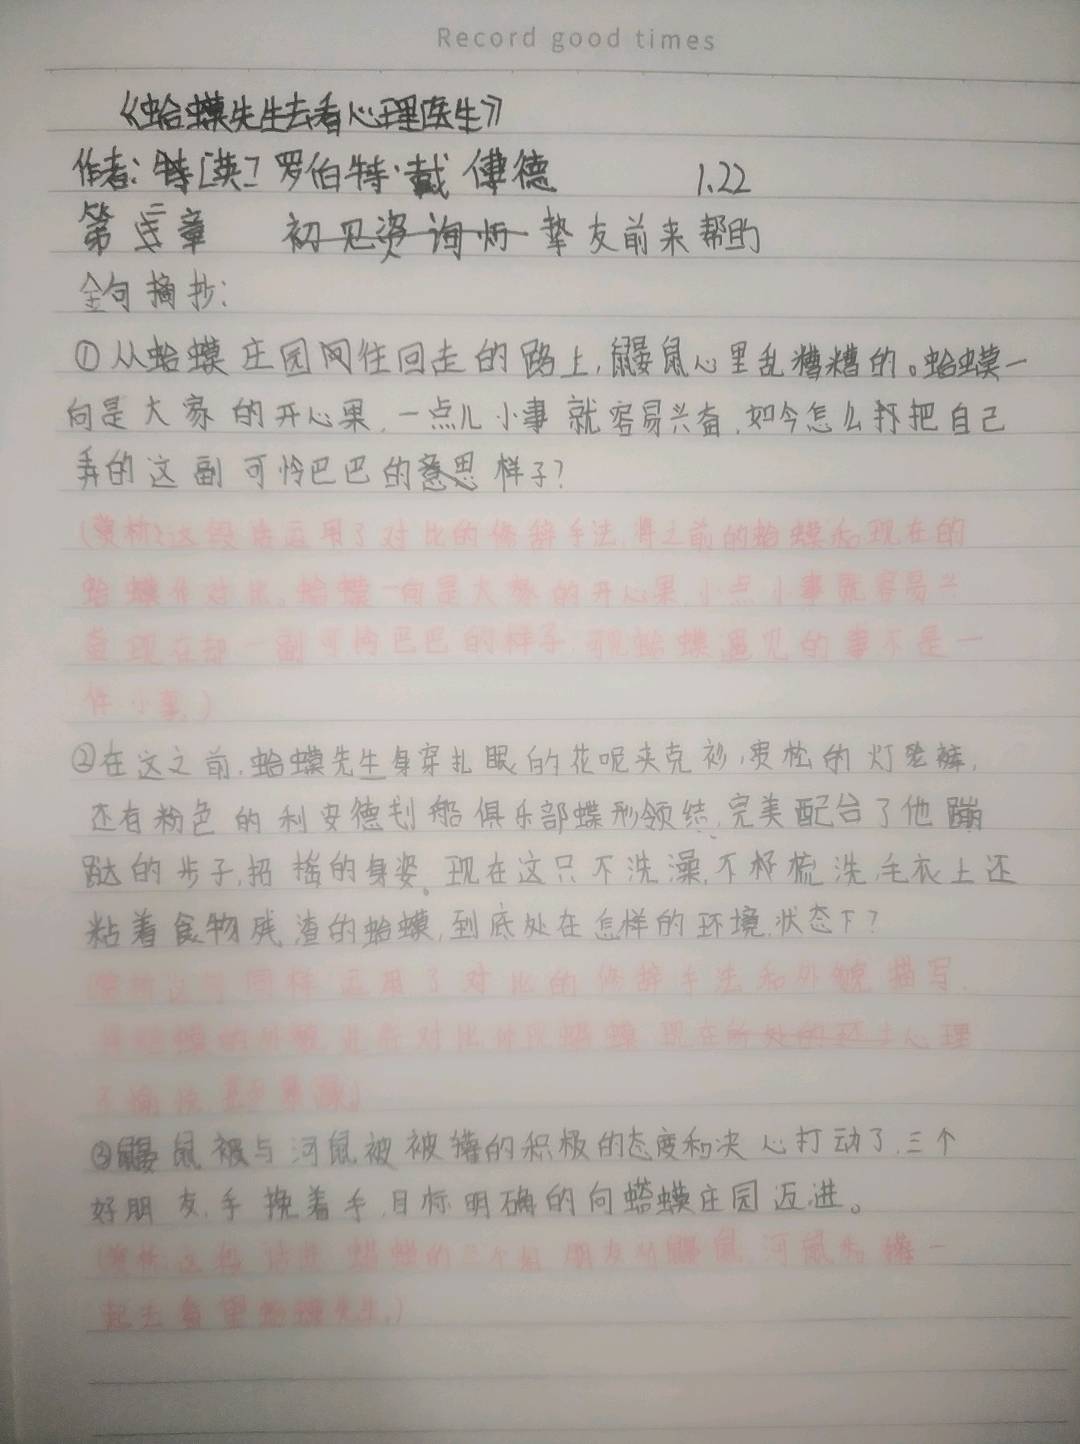 Record good times
《蛤蟆先生去看心理医生》
作者：[英] 罗伯特·戴 傅德 1.22
第二章 初见资询师 挚友前来帮助
金句摘抄：
①从蛤蟆庄园网往回走的路上，鼹鼠心里乱糟糟的。蛤蟆一
向是大家的开心果，一点儿小事就容易兴奋，如今怎么把自己
弄的这副可怜巴巴的意思样子？
(赏析：这段话运用了对比的修辞手法，将之前的蛤蟆和现在的
蛤蟆作对比。蛤蟆一向是大家的开心果，小点小事就容易兴
奋，现在却一副可怜巴巴的样子，可见蛤蟆遇见的事不是一
件小事。)
②在这之前，蛤蟆先生身穿扎眼的花呢夹克衫，宽松的灯笼裤，
还有粉色的利安德划船俱乐部蝶形领结，完美配合了他蹦
跶的步子，招摇的身姿。现在这只不洗澡，不好梳洗，毛衣上还
粘着食物残渣的蛤蟆，到底处在怎样的环境，状态下？
同样运用了对比的修辞手法和外貌描写，
对比 蛤蟆 现在所处的 心理
不愉快
③鼹鼠被与河鼠被被獾的积极的态度和决心打动了，三个
好朋友，手挽着手，目标明确的向蟾蟆庄园迈进。
这段 的三个好朋友 鼹鼠，河鼠和獾一
起去看望蛤蟆先生。)